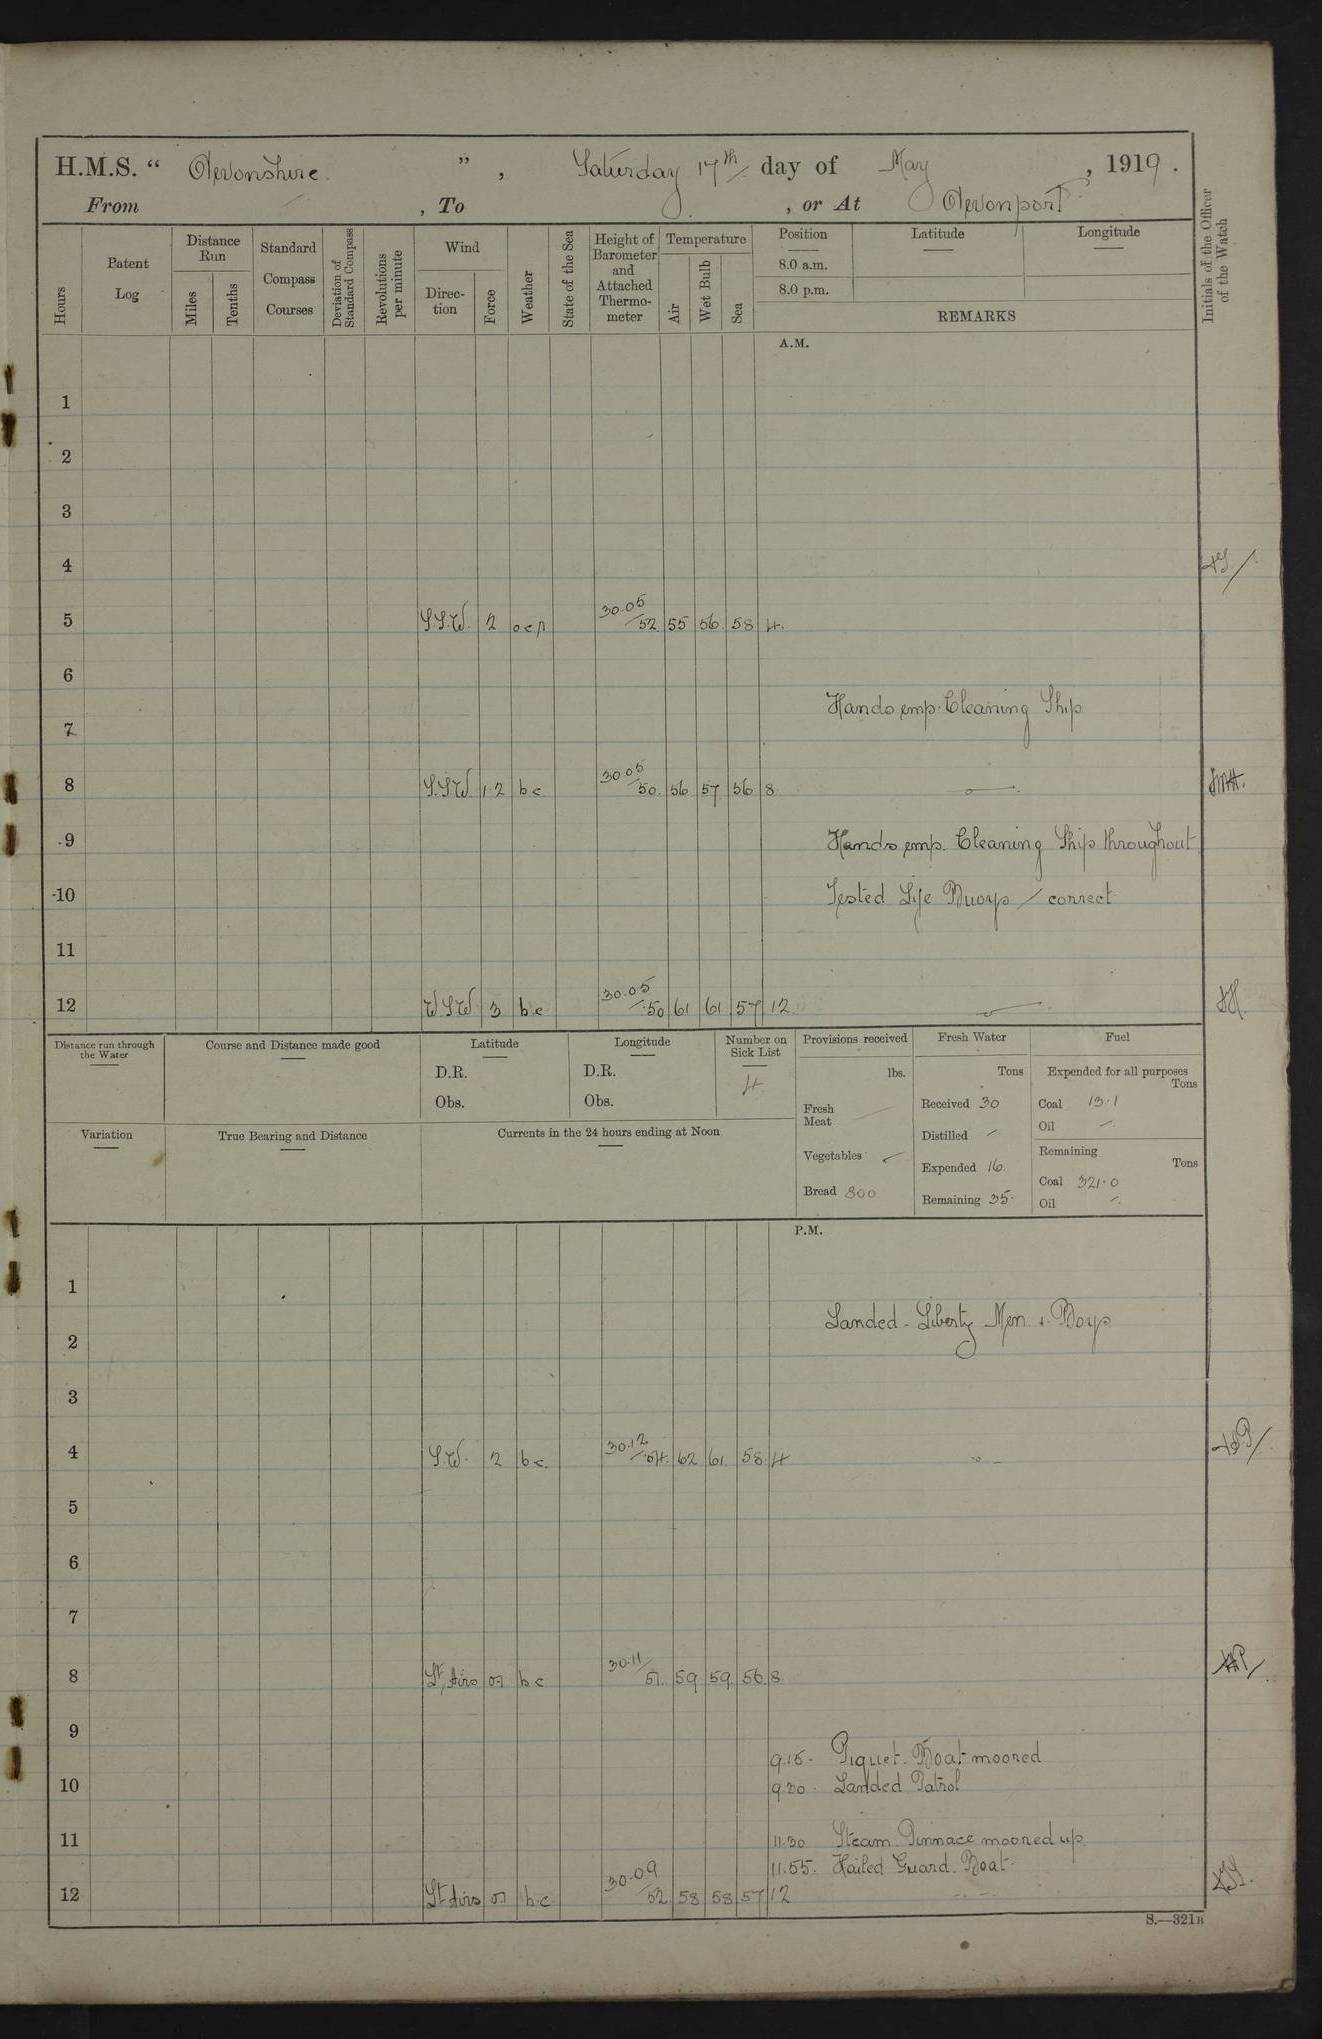 H.M.S. “ Devonshire ”, Saturday 17th day of May, 1919.
From , To , or At Devonport
Hours
Patent Log
Distance Run
Miles
Tenths
Standard Compass Courses
Deviation of Standard Compass
Revolutions per minute
Wind
Direction
Force
Weather
State of the Sea
Height of Barometer and Attached Thermometer
Temperature
Air
Wet Bulb
Sea
Position
8.0 a.m.
8.0 p.m.
Latitude
Longitude
REMARKS
Initials of the Officer of the Watch
A.M.
1
2
3
4
5 S.S.W. 2 ocp 30.05/52 55 56 58 4.
6
Hands emp. Cleaning Ship
7
8 S.S.W. 1.2 bc 30.05/50. 56 57 56 8
9 Hands emp. Cleaning Ship throughout
10 Tested Life Buoys / correct
11
12 W.S.W 3 bc 30.05/50 61 61 57 12
Distance run through the Water
Course and Distance made good
Latitude
D.R.
Obs.
Longitude
D.R.
Obs.
Number on Sick List
4
Provisions received
lbs.
Fresh Meat
Vegetables
Bread 800
Fresh Water
Tons
Received 30
Distilled
Expended 16
Remaining 35
Fuel
Expended for all purposes
Tons
Coal 13.1
Oil
Remaining
Tons
Coal 321.0
Oil
Variation
True Bearing and Distance
Currents in the 24 hours ending at Noon
P.M.
1
Landed Liberty Men & Boys
2
3
4 S.W. 2 bc. 30.12/54. 62 61 58 4
5
6
7
8 Lt Airs 01 bc 30.11/51. 59 59 56 8
9
9.15. Piquet Boat moored
10 9.20 Landed Patrol
11 11.30 Steam Pinnace moored up.
11.55. Hailed Guard Boat
12 Lt Airs 01 bc 30.09/52 58 58 57 12
S.—321B